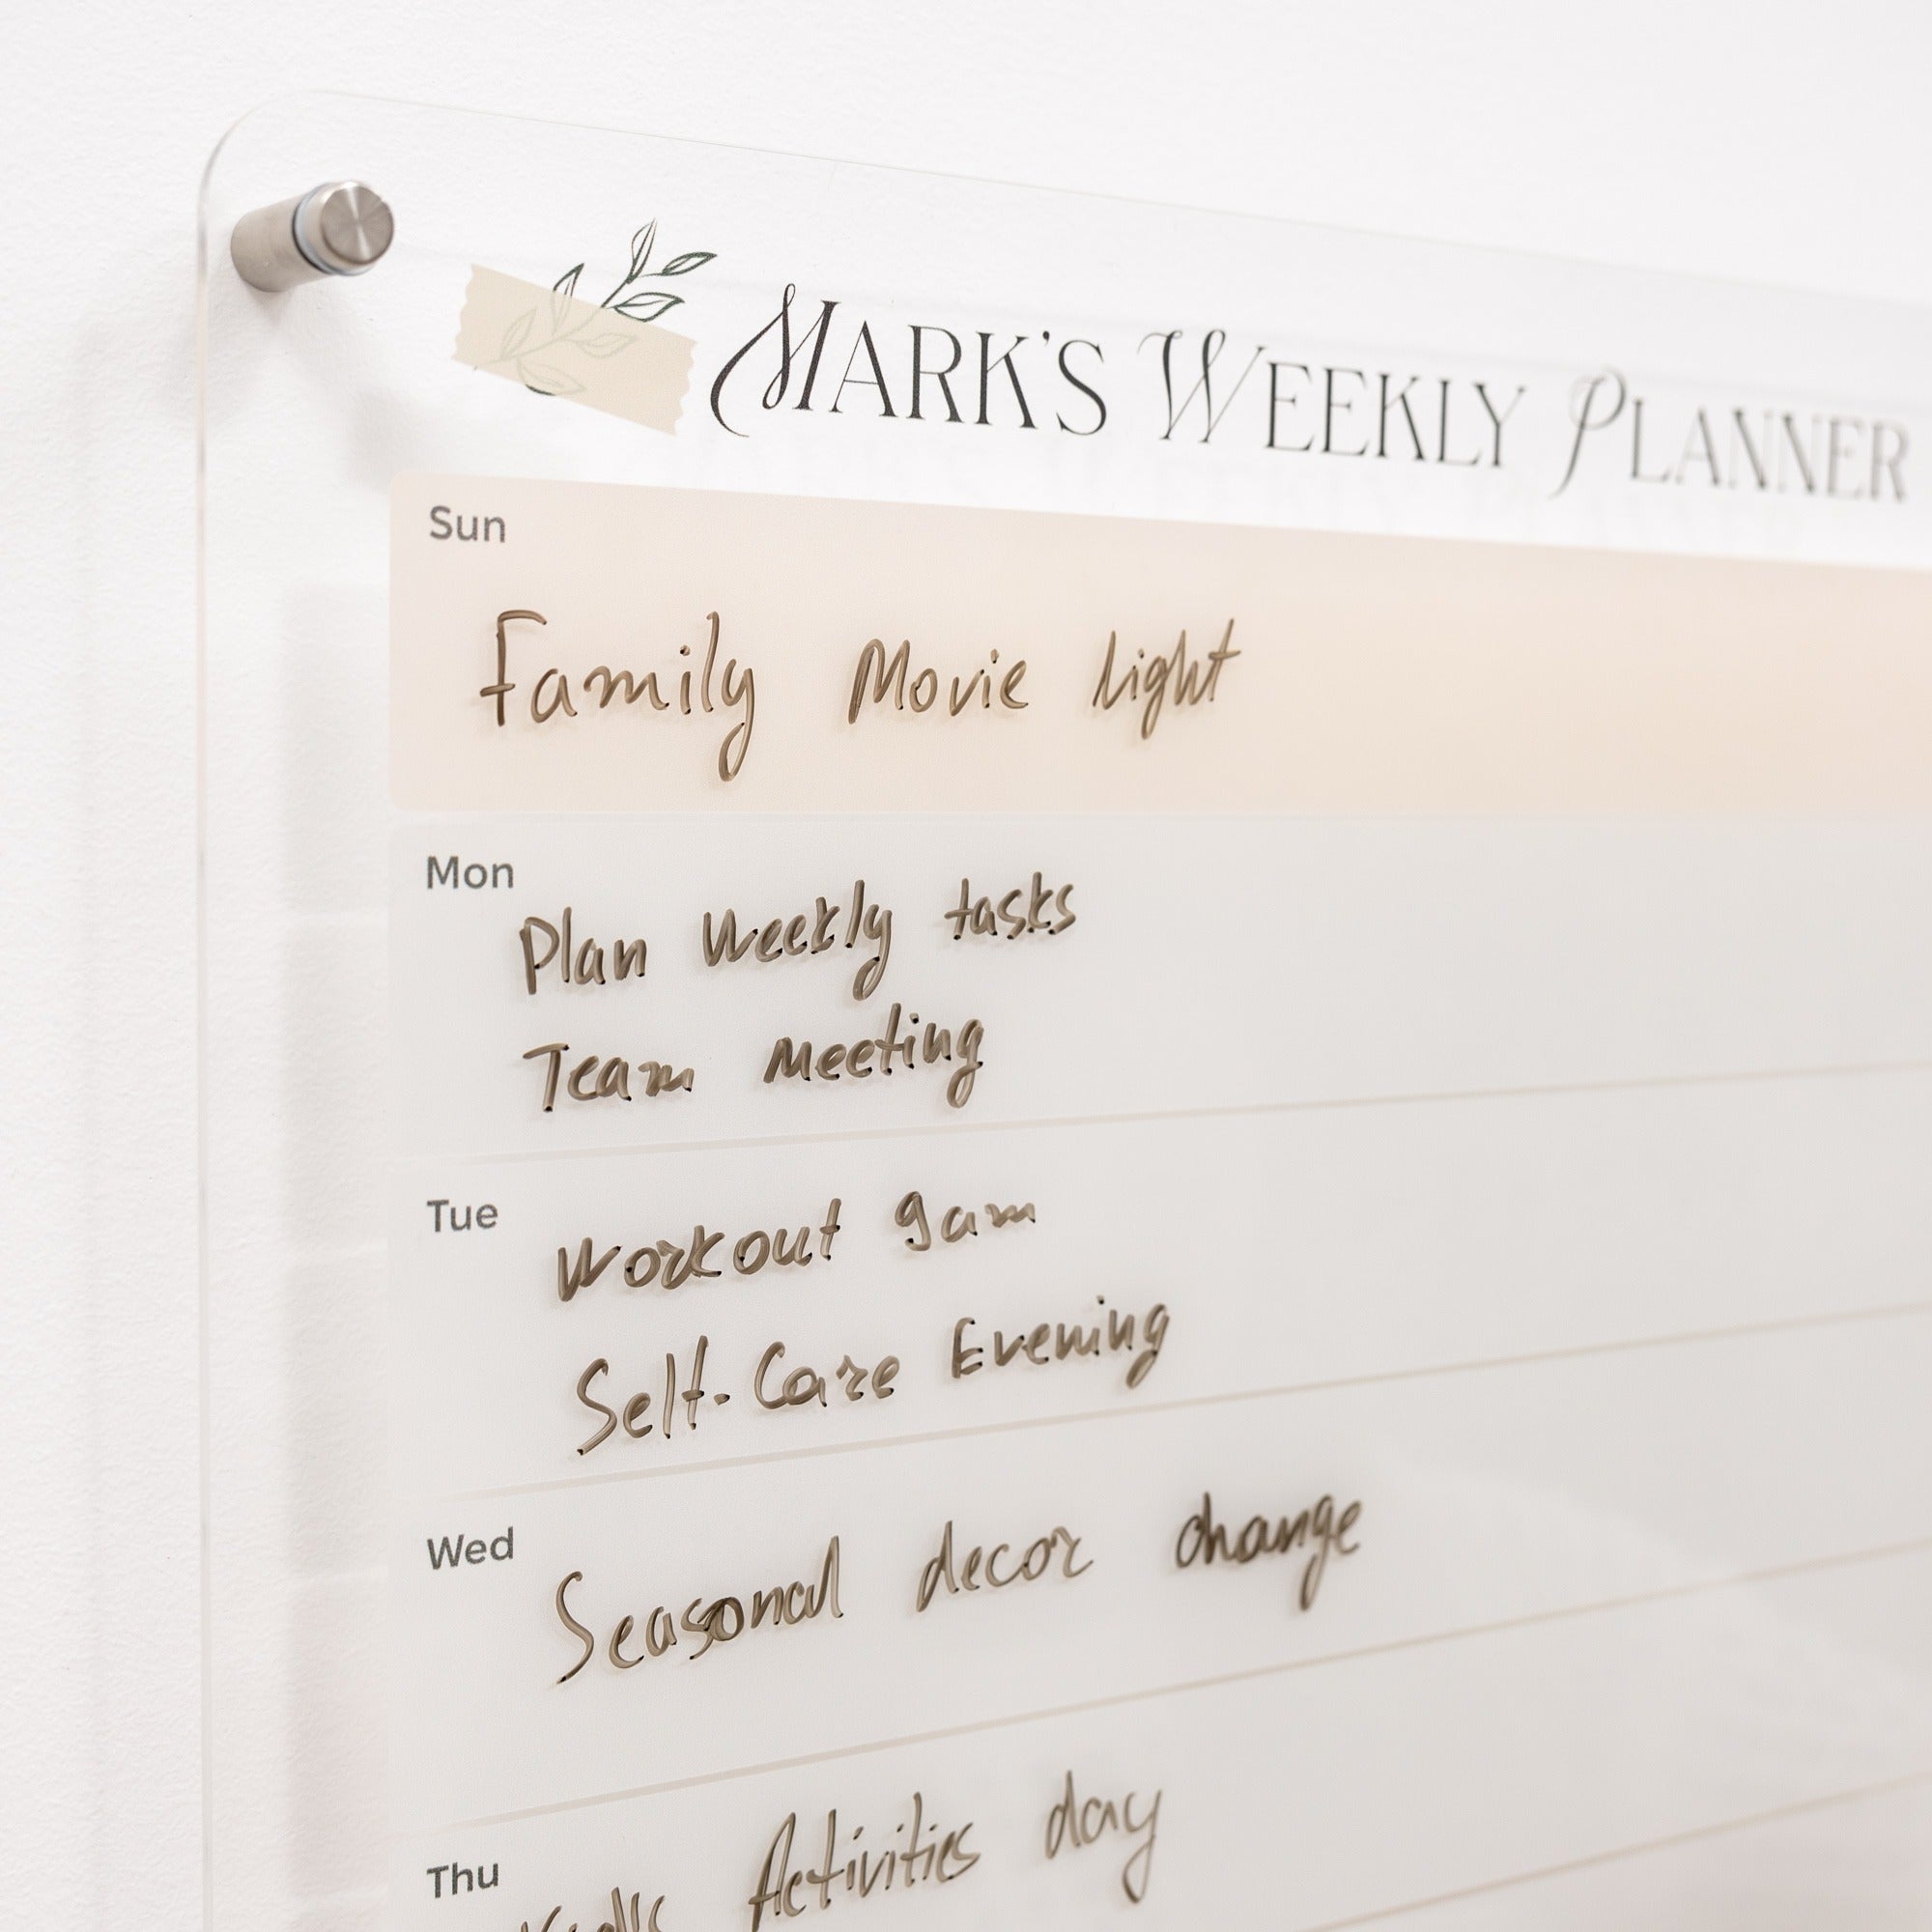 MARK'S WEEKLY PLANNER
Sun
Family Movie Light
Mon
Plan Weekly tasks
Team Meeting
Tue
Workout 9am
Self-Care Evening
Wed
Seasonal decor change
Thu
Activities day